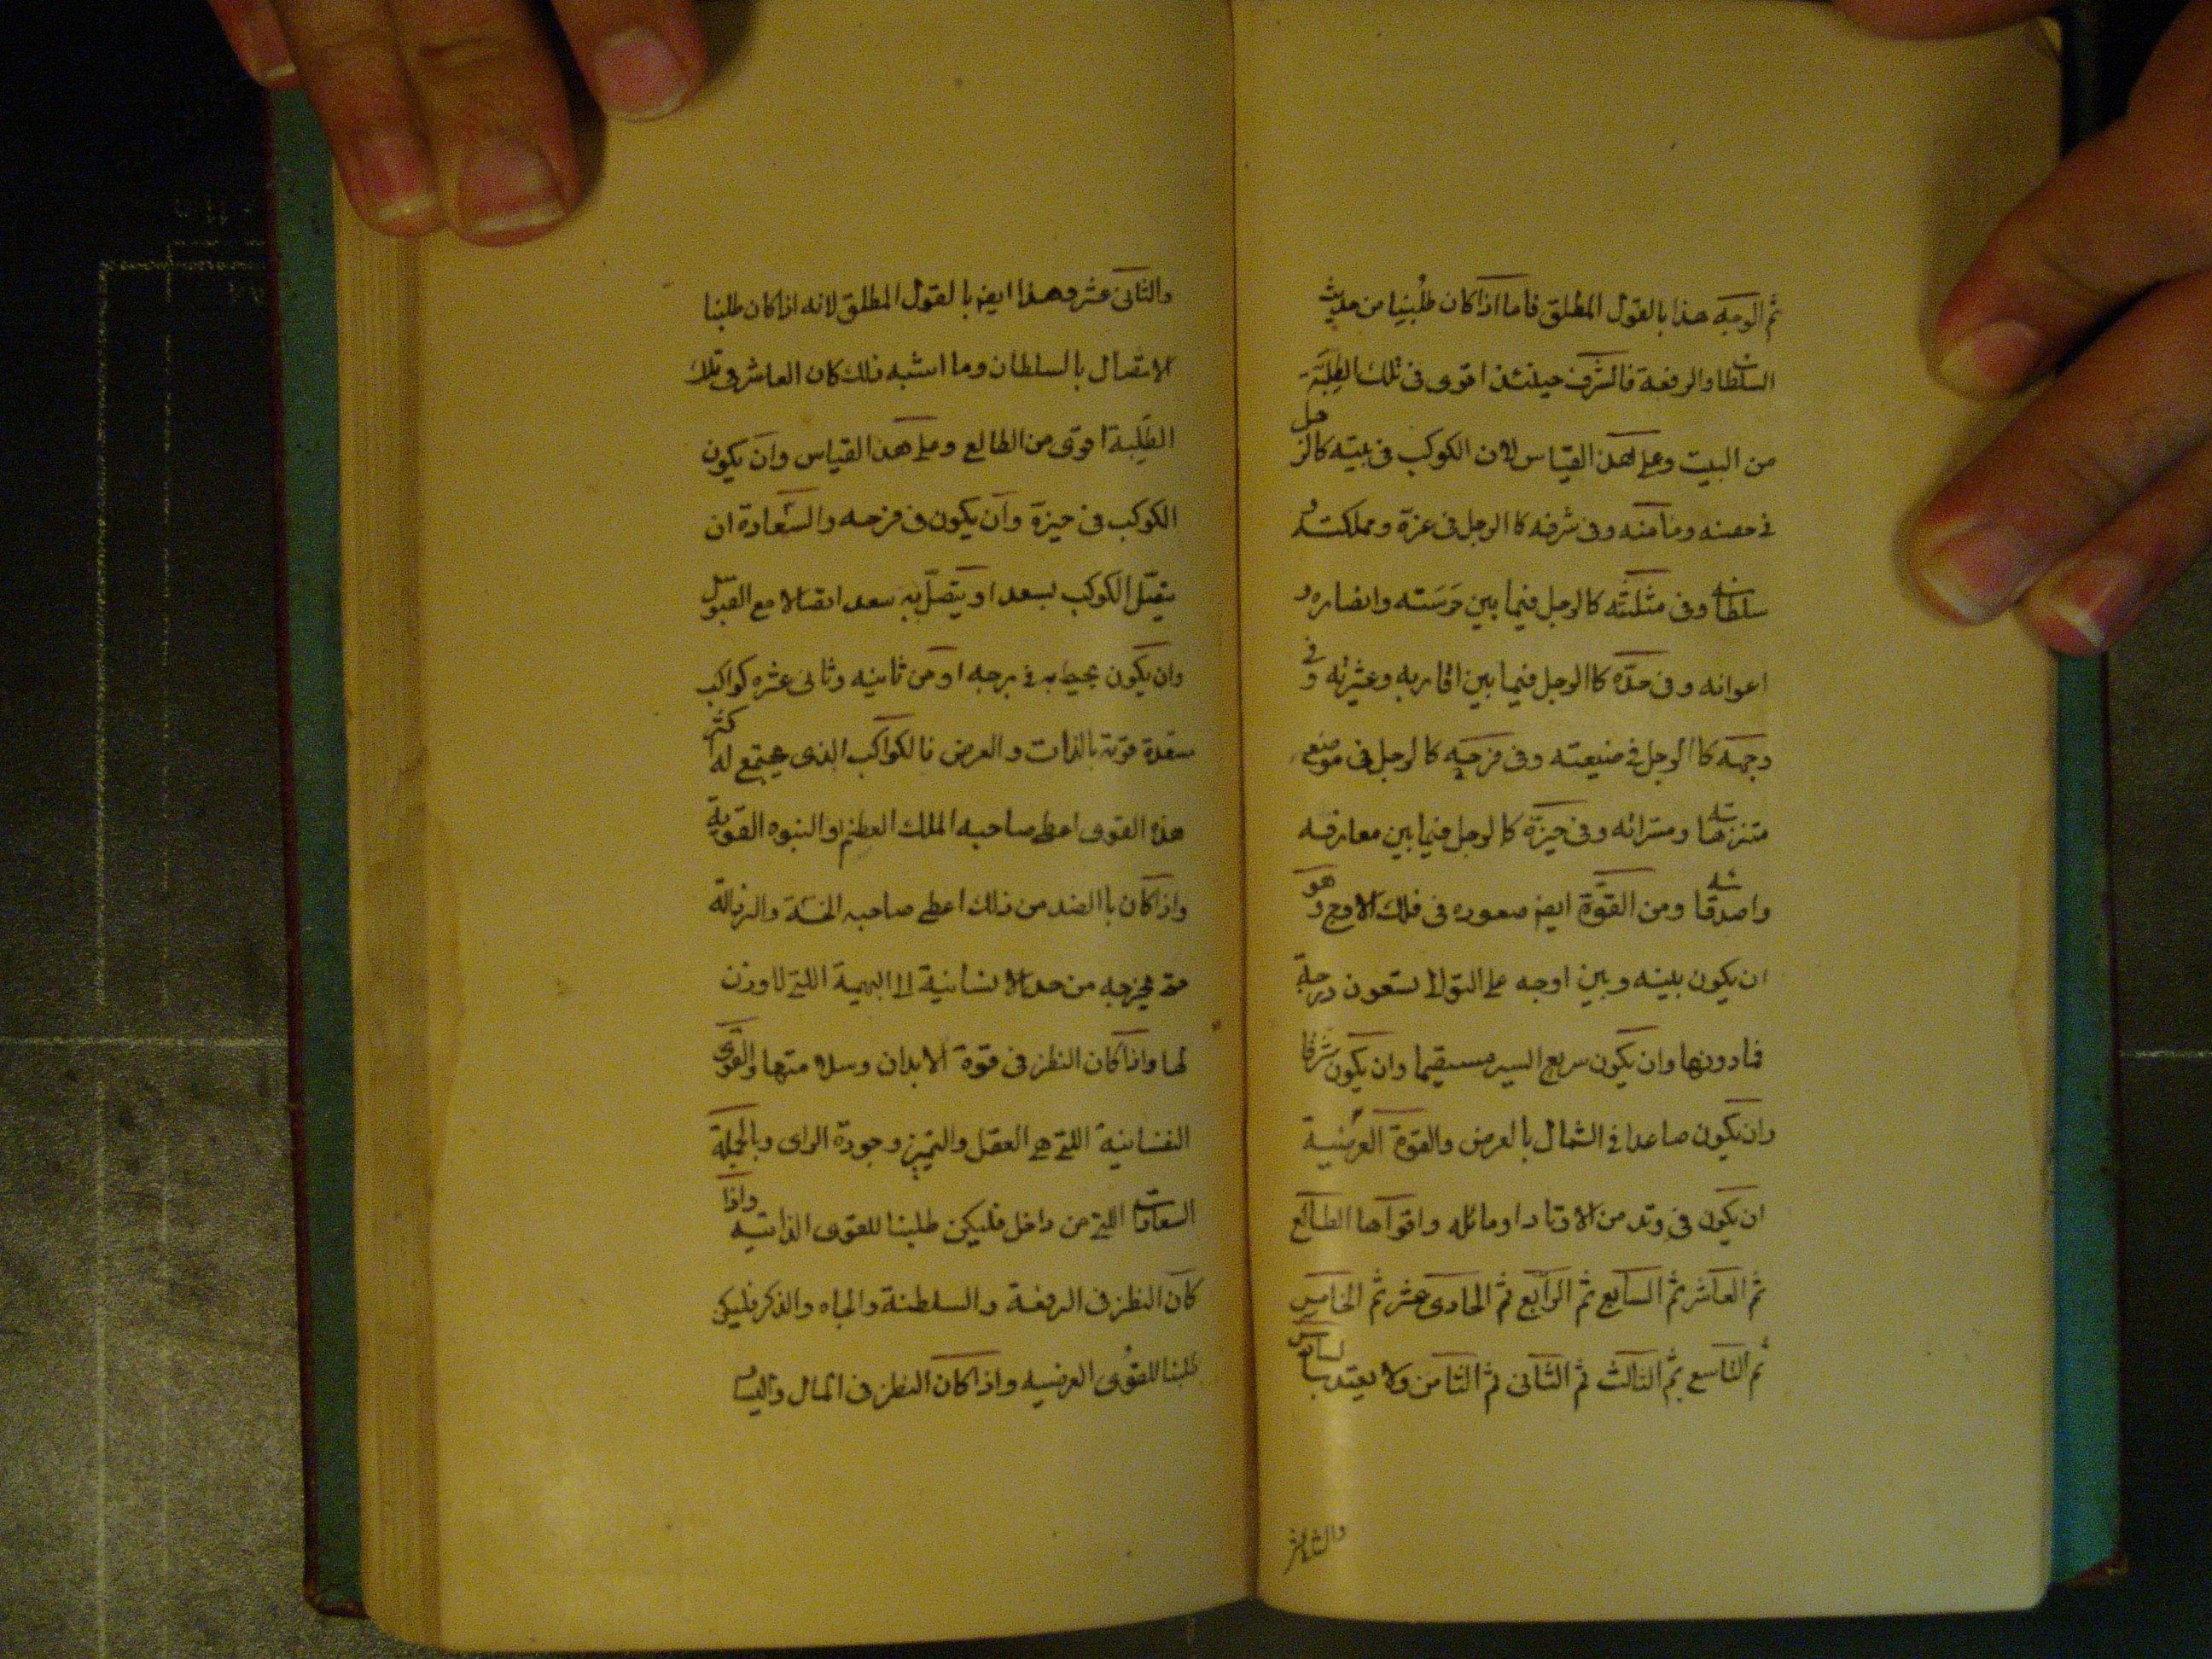 ثم الوجه هذا بالقول المطلق فاما اذا كان طلبنا من حديث
السلطان والرفعة فالشرف حينئذ اقوى فى تلك الطلبة
من البيت وعلى هذا القياس لان الكوكب فى بيته كالرجل
فى حصنه ومأمنه وفى شرفه كا الرجل فى عزة ومملكته و
سلطانه وفى مثلثته كالرجل فيما بين حرسته وانصاره و
اعوانه وفى حدّه كا الرجل فيما بين اقاربه وعشرته وفى
وجهه كا الرجل فى ضيعته وفى فرحه كا لرجل فى موضع
متنزهاته ومسراته وفى حيزه كا لرجل فيما بين معارفه
واصدقائه ومن القوة ايض صعوده فى فلك الاوج وهو
ان يكون بينه وبين اوجه على التوالى تسعون درجة
فمادونها وان يكون سريع السير مستقيما وان يكون شرقا
وان يكون صاعدا فى الشمال بالعرض والقوة العرضية
ان يكون فى وتد من الاوتاد او مائله واقواها الطالع
ثم العاشر ثم السابع ثم الرابع ثم الحادى عشر ثم الخامس
ثم التاسع ثم الثالث ثم الثانى ثم الثامن ولا يعتد بالسادس
والثانى عشر
والثانى عشر وهذا ايض بالقول المطلق لانه اذا كان طلبنا
الاتصال بالسلطان وما اشبه ذلك كان العاشر فى تلك
الطلبة اقوى من الطالع وعلى هذا القياس وان يكون
الكوكب فى حيزة وان يكون فى فرحه والسعادة ان
يتصل الكوكب بسعد او يتصل به سعد اتصالا مع القبول
وان يكون يحيط به فى برجه او من ثانيه وثانى عشره كواكب
سعدة قوية بالذات والعرض فالكواكب الذى يجتمع له اكثر
هذه القوى اعطى صاحبه الملك العظيم والنبوه القوية
واذا كان با الضد من ذلك اعطى صاحبه الخسة والرذالة
حتى يخرجه من حد الانسانية الى البهيمة اللتى لا وزن
لها واذا كان النظر فى قوة الابدان وسلامتها والقوى
النفسانية اللتى هى العقل والتميز وجودة الراى وبالجملة
السعادات اللتى من داخل فليكن طلبنا للقوى الذاتيه واذا
كان النظر فى الرفعة والسلطنة والجاه والذكر فليكن
طلبنا للقوى العرضيه واذا كان النظر فى المال واليسار